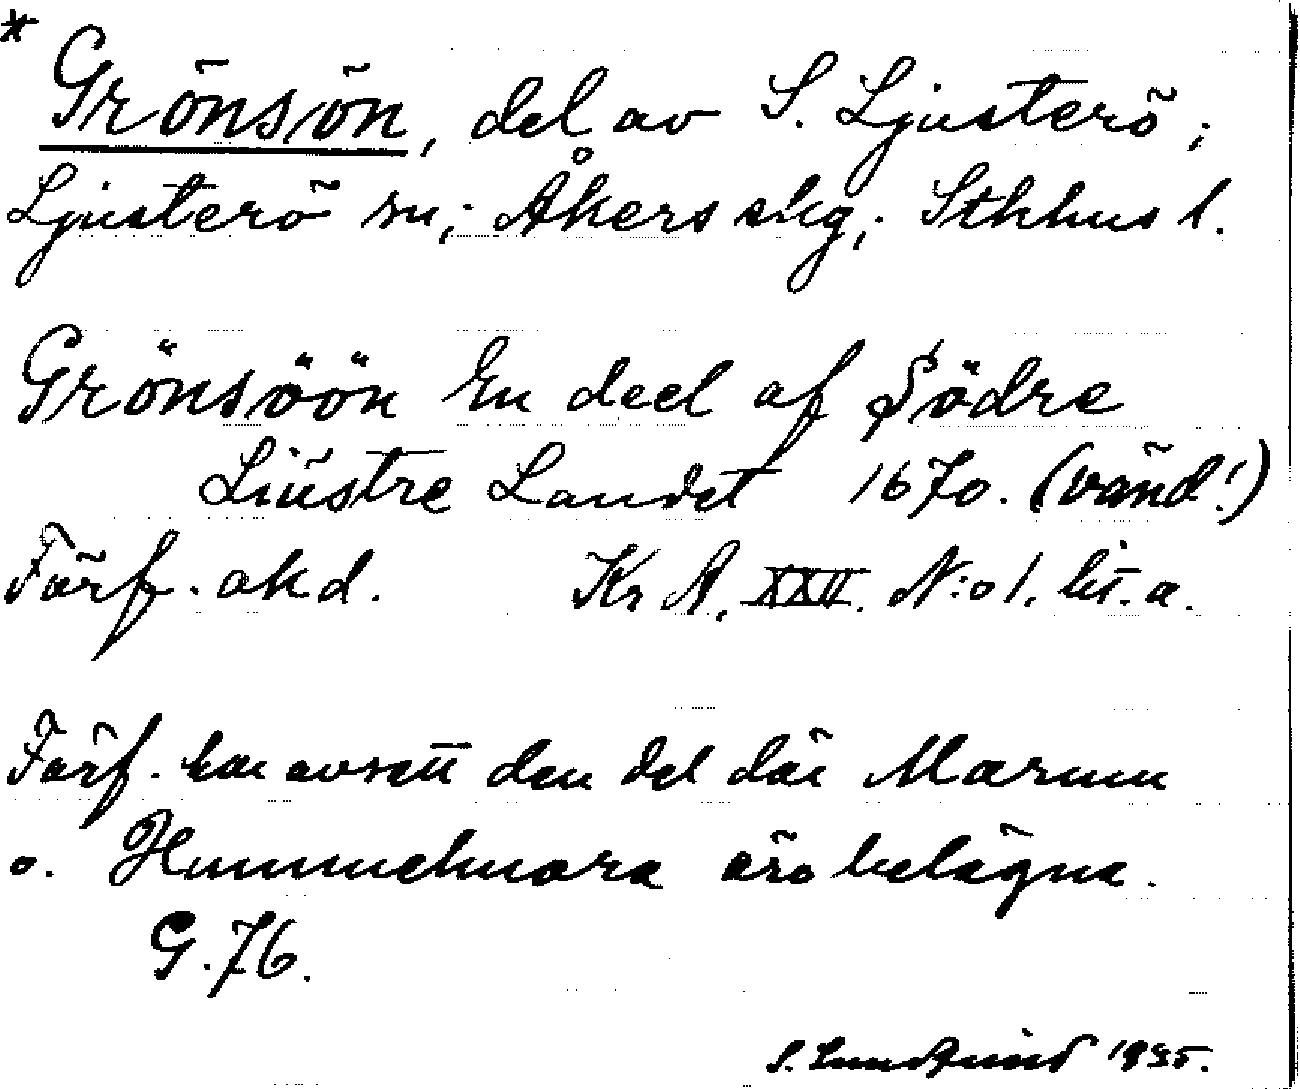 * Grönsön, del av S. Ljusterö;
Ljusterö sn; Åkers skg; Sthlms l.
Grönsöön En deel af Södre
Liústre Landet 1670. (vänd!)
Förf. okd. Kr A. XXII. N:o 1. lit. a.
Förf. har avsett den del där Marum
o. Hummelmora äro belägna.
G. 76.
S. 1935.